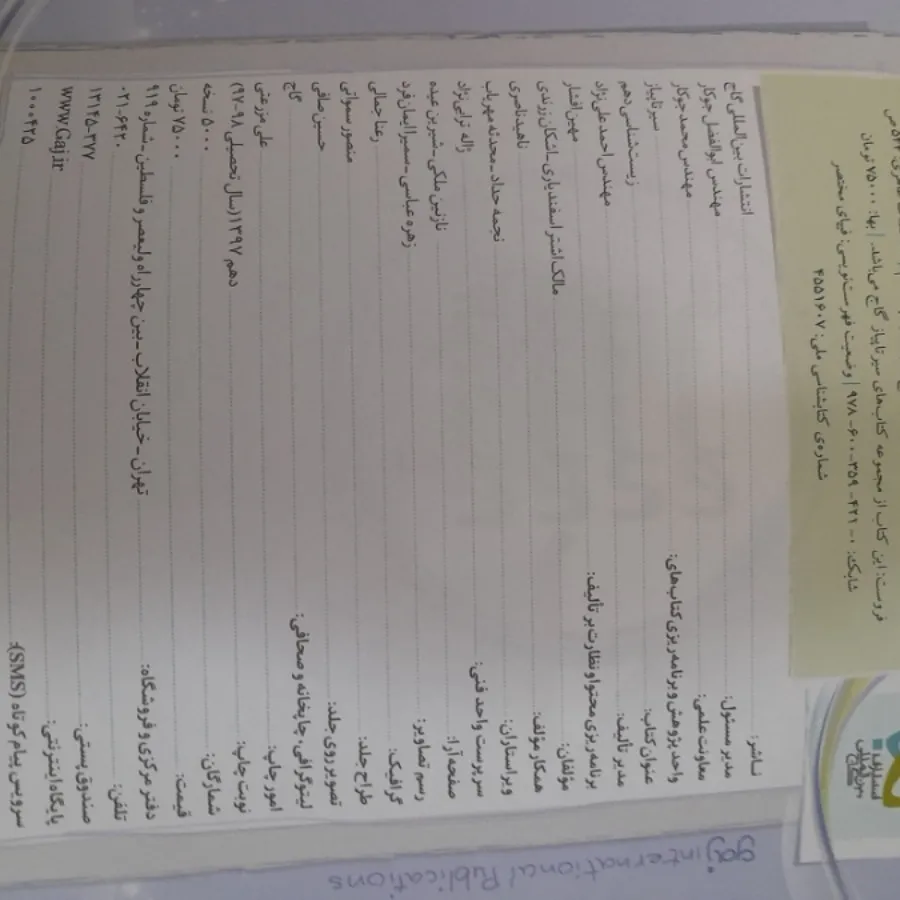 فروست: این کتاب از مجموعه کتاب‌های سیر تا پیاز گاج می‌باشد. | بها: ۷۵۰۰۰ تومان
شابک: ۰-۴۲۱-۳۵۹-۶۰۰-۹۷۸ | وضعیت فهرست‌نویسی: فیپای مختصر
شماره‌ی کتابشناسی ملی: ۴۵۵۱۶۰۷
ناشر: انتشارات بین‌المللی گاج
مدیر مسئول: مهندس ابوالفضل جوکار
معاونت علمی: مهندس محمد جوکار
واحد پژوهش و برنامه‌ریزی کتاب‌های: سیر تا پیاز
عنوان کتاب: زیست‌شناسی دهم
مدیر تألیف: مهندس احمد علی‌نژاد
برنامه‌ریزی محتوا و نظارت بر تألیف: مهین افشار
مؤلفان: مالک اشتر اسفندیاری ـ اشکان زرندی
همکار مؤلف: ناهید ناصری
ویراستاران: نجمه حداد ـ محدثه مهریاب
سرپرست واحد فنی: ژاله ترابی‌نژاد
صفحه‌آرا: نازنین ملکی ـ شیرین عبده
رسم تصاویر: زهره عباسی ـ سمیرا ایمان‌فرد
گرافیک: رعنا جمالی
طراح جلد: منصور سمواتی
تصویر روی جلد: حسین صافی
لیتوگرافی، چاپخانه و صحافی: گاج
امور چاپ: علی مزرعتی
نوبت چاپ: دهم ۱۳۹۷ (سال تحصیلی ۹۸-۹۷)
شمارگان: ۵۰۰۰ نسخه
قیمت: ۷۵۰۰۰ تومان
دفتر مرکزی و فروشگاه: تهران ـ خیابان انقلاب ـ بین چهارراه ولیعصر و فلسطین ـ شماره ۹۱۹
تلفن: ۰۲۱-۶۴۲۰
صندوق پستی: ۱۳۱۴۵-۳۷۷
پایگاه اینترنتی: www.Gaj.ir
سرویس پیام کوتاه (SMS): ۱۰۰۰۶۴۲۵
gaj international Publications